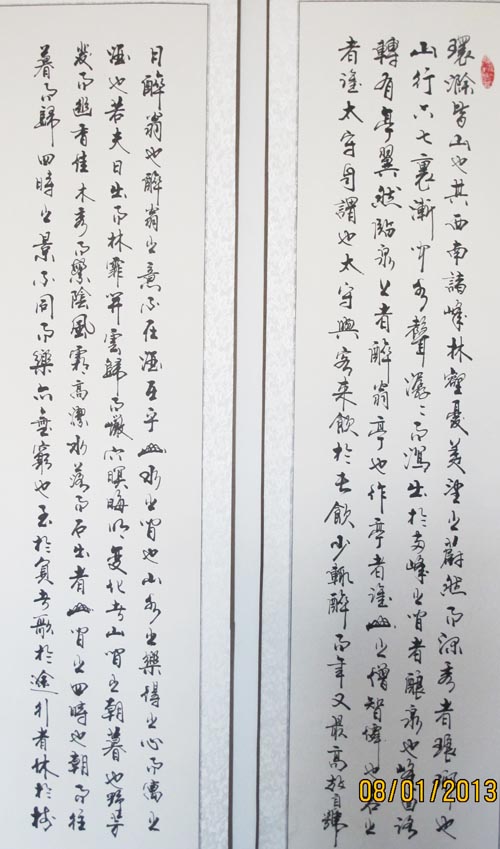 環滁皆山也其西南諸峰林壑憂美望之蔚然而深秀者琅琊也
山行六七裏漸聞水聲潺々而瀉出於兩峰之間者釀泉也峰回路
轉有亭翼然臨泉上者醉翁亭也作亭者誰山之僧智僊也名之
者誰太守自謂也太守與客來飲於此飲少輒醉而年又最高故自號
曰醉翁也醉翁之意不在酒在乎山水之間也山水之樂得之心而寓之
酒也若夫日出而林霏開雲歸而巖穴暝晦明變化者山間之朝暮也野芳
發而幽香佳木秀而繁陰風霜高潔水落而石出者山間之四時也朝而往
暮而歸四時之景不同而樂亦無窮也至於負者歌於途行者休於樹
08/01/2013